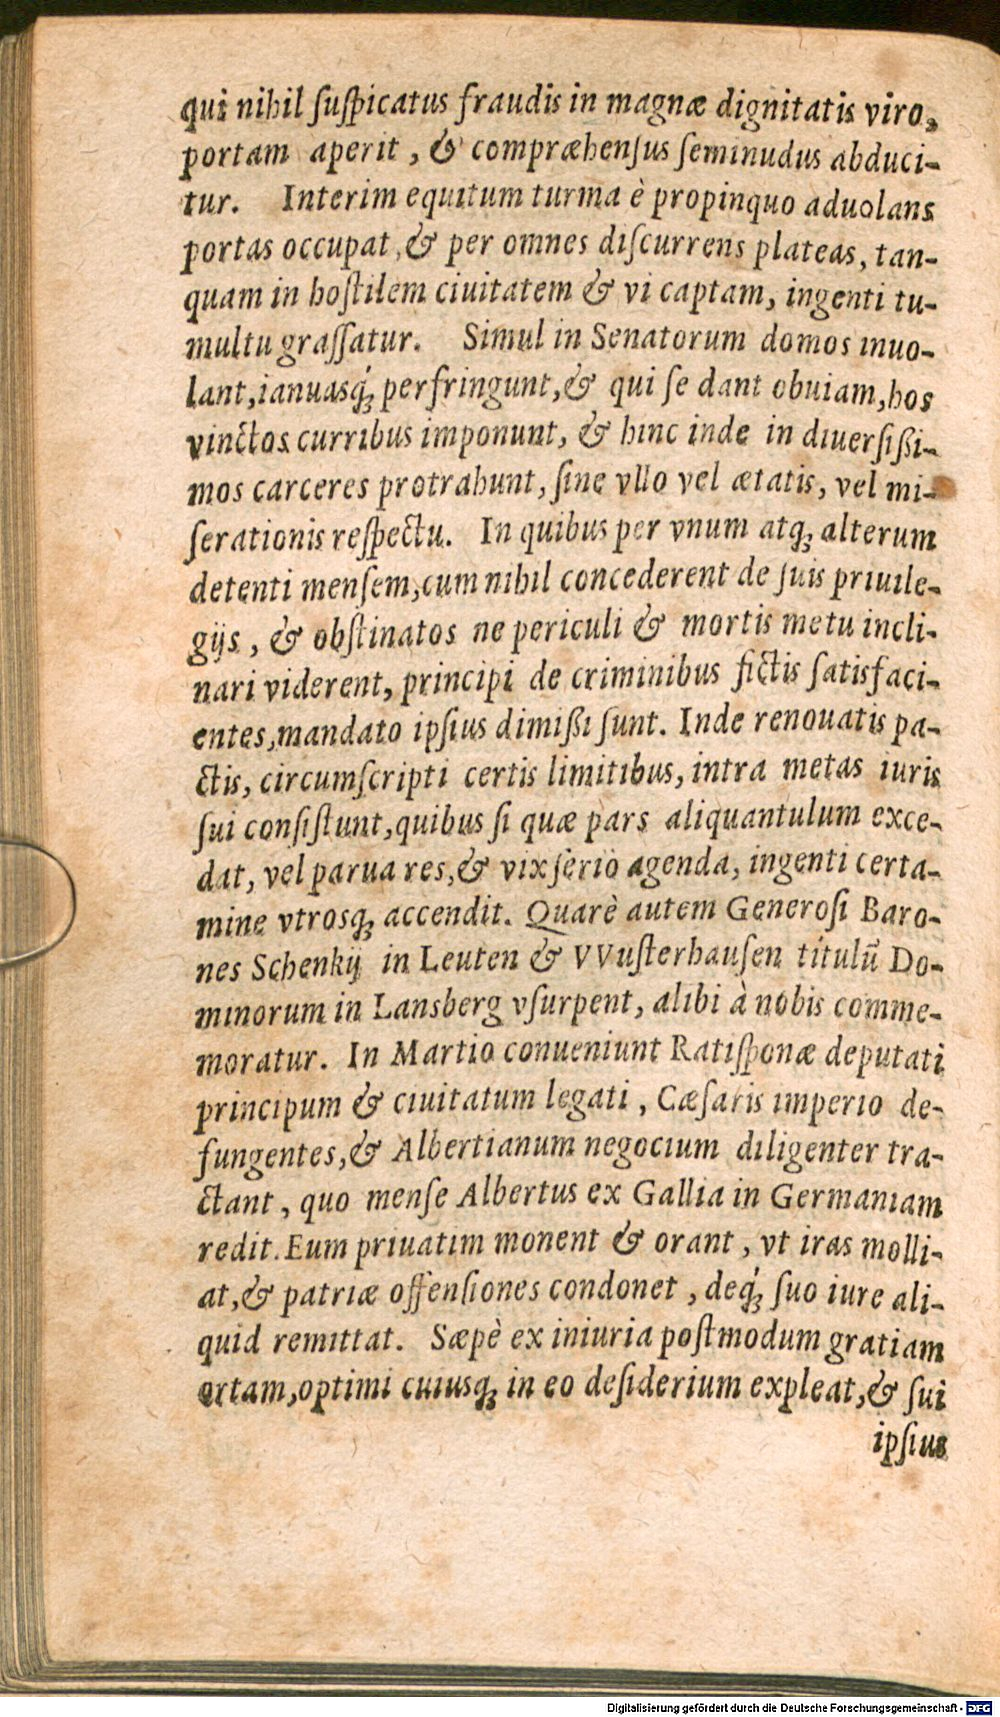 qui nihil ſuſpicatus fraudis in magnæ dignitatis viro,
portam aperit, & compræhenſus ſeminudus abduci-
tur. Interim equitum turma è propinquo aduolans
portas occupat, & per omnes diſcurrens plateas, tan-
quam in hoſtilem ciuitatem & vi captam, ingenti tu-
multu graſſatur. Simul in Senatorum domos inuo-
lant, ianuasq́; perfringunt, & qui ſe dant obuiam, hos
vinctos curribus imponunt, & hinc inde in diuerſißi-
mos carceres protrahunt, ſine vllo vel ætatis, vel mi-
ſerationis reſpectu. In quibus per vnum atq; alterum
detenti menſem, cum nihil concederent de ſuis priuile-
gijs, & obſtinatos ne periculi & mortis metu incli-
nari viderent, principi de criminibus fictis ſatisfaci-
entes, mandato ipſius dimißi ſunt. Inde renouatis pa-
ctis, circumſcripti certis limitibus, intra metas iuris
ſui conſiſtunt, quibus ſi quæ pars aliquantulum exce-
dat, vel parua res, & vix ſeriò agenda, ingenti certa-
mine vtrosq; accendit. Quarè autem Generoſi Baro-
nes Schenkij in Leuten & VVuſterhauſen titulũ Do-
minorum in Lansberg vſurpent, alibi à nobis comme-
moratur. In Martio conueniunt Ratiſponæ deputati
principum & ciuitatum legati, Cæſaris imperio de-
fungentes, & Albertianum negocium diligenter tra-
ctant, quo menſe Albertus ex Gallia in Germaniam
redit. Eum priuatim monent & orant, vt iras molli-
at, & patriæ offenſiones condonet, deq́; ſuo iure ali-
quid remittat. Sæpè ex iniuria poſtmodum gratiam
ortam, optimi cuiusq; in eo deſiderium expleat, & ſui
ipſius
Digitalisierung gefördert durch die Deutsche Forschungsgemeinschaft - DFG